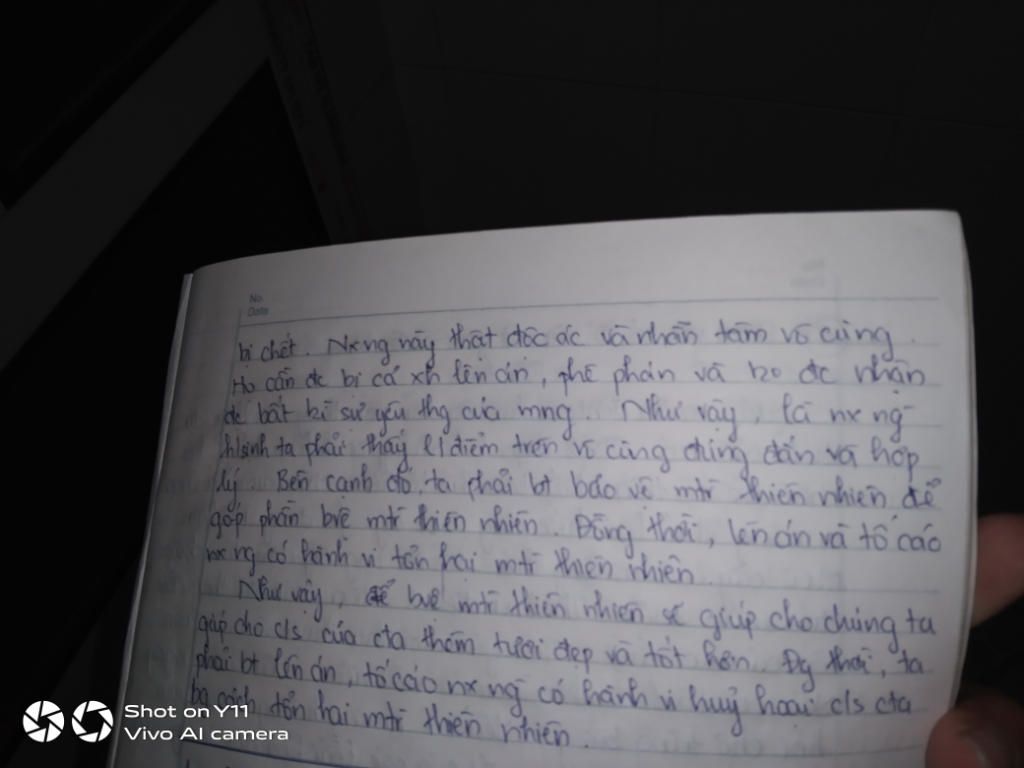 No.
Date
bị chết. Nx ng này thật độc ác và nhẫn tâm vô cùng.
Họ cần đc bị cả xh lên án, phê phán và ko đc nhận
đc bất kì sự yêu thg của mng. Như vậy, là nx ng
h/sinh ta phải thấy l/điểm trên vô cùng đúng đắn và hợp
lý. Bên cạnh đó, ta phải bt bảo vệ mtr thiên nhiên để
góp phần bvệ mtr thiên nhiên. Đồng thời, lên án và tố cáo
nx ng có hành vi tổn hại mtr thiên nhiên.
Như vậy, để bvệ mtr thiên nhiên sẽ giúp cho chúng ta
giúp cho c/s của cta thêm tươi đẹp và tốt hơn. Đg thời, ta
phải bt lên án, tố cáo nx ng có hành vi huỷ hoại c/s cta
tổn hại mtr thiên nhiên.
Shot on Y11
Vivo AI camera